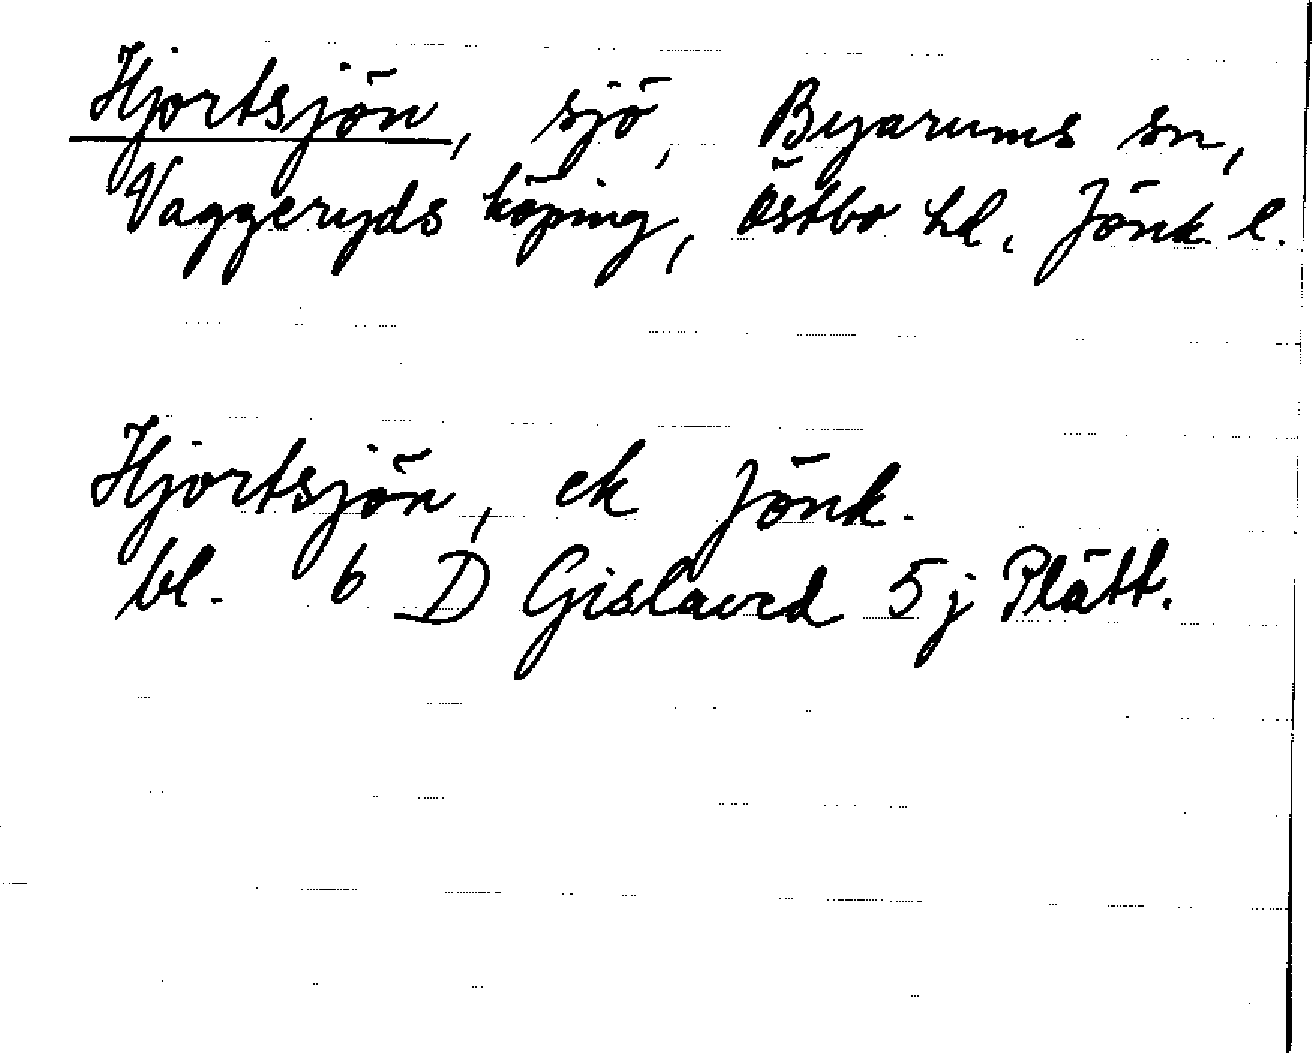 Hjortsjön, sjö, Byarums sn,
Vaggeryds köping, Östbo hd, Jönk. l.
Hjortsjön, ek Jönk.
bl. 6 D Gislaved 5 j Plätt.